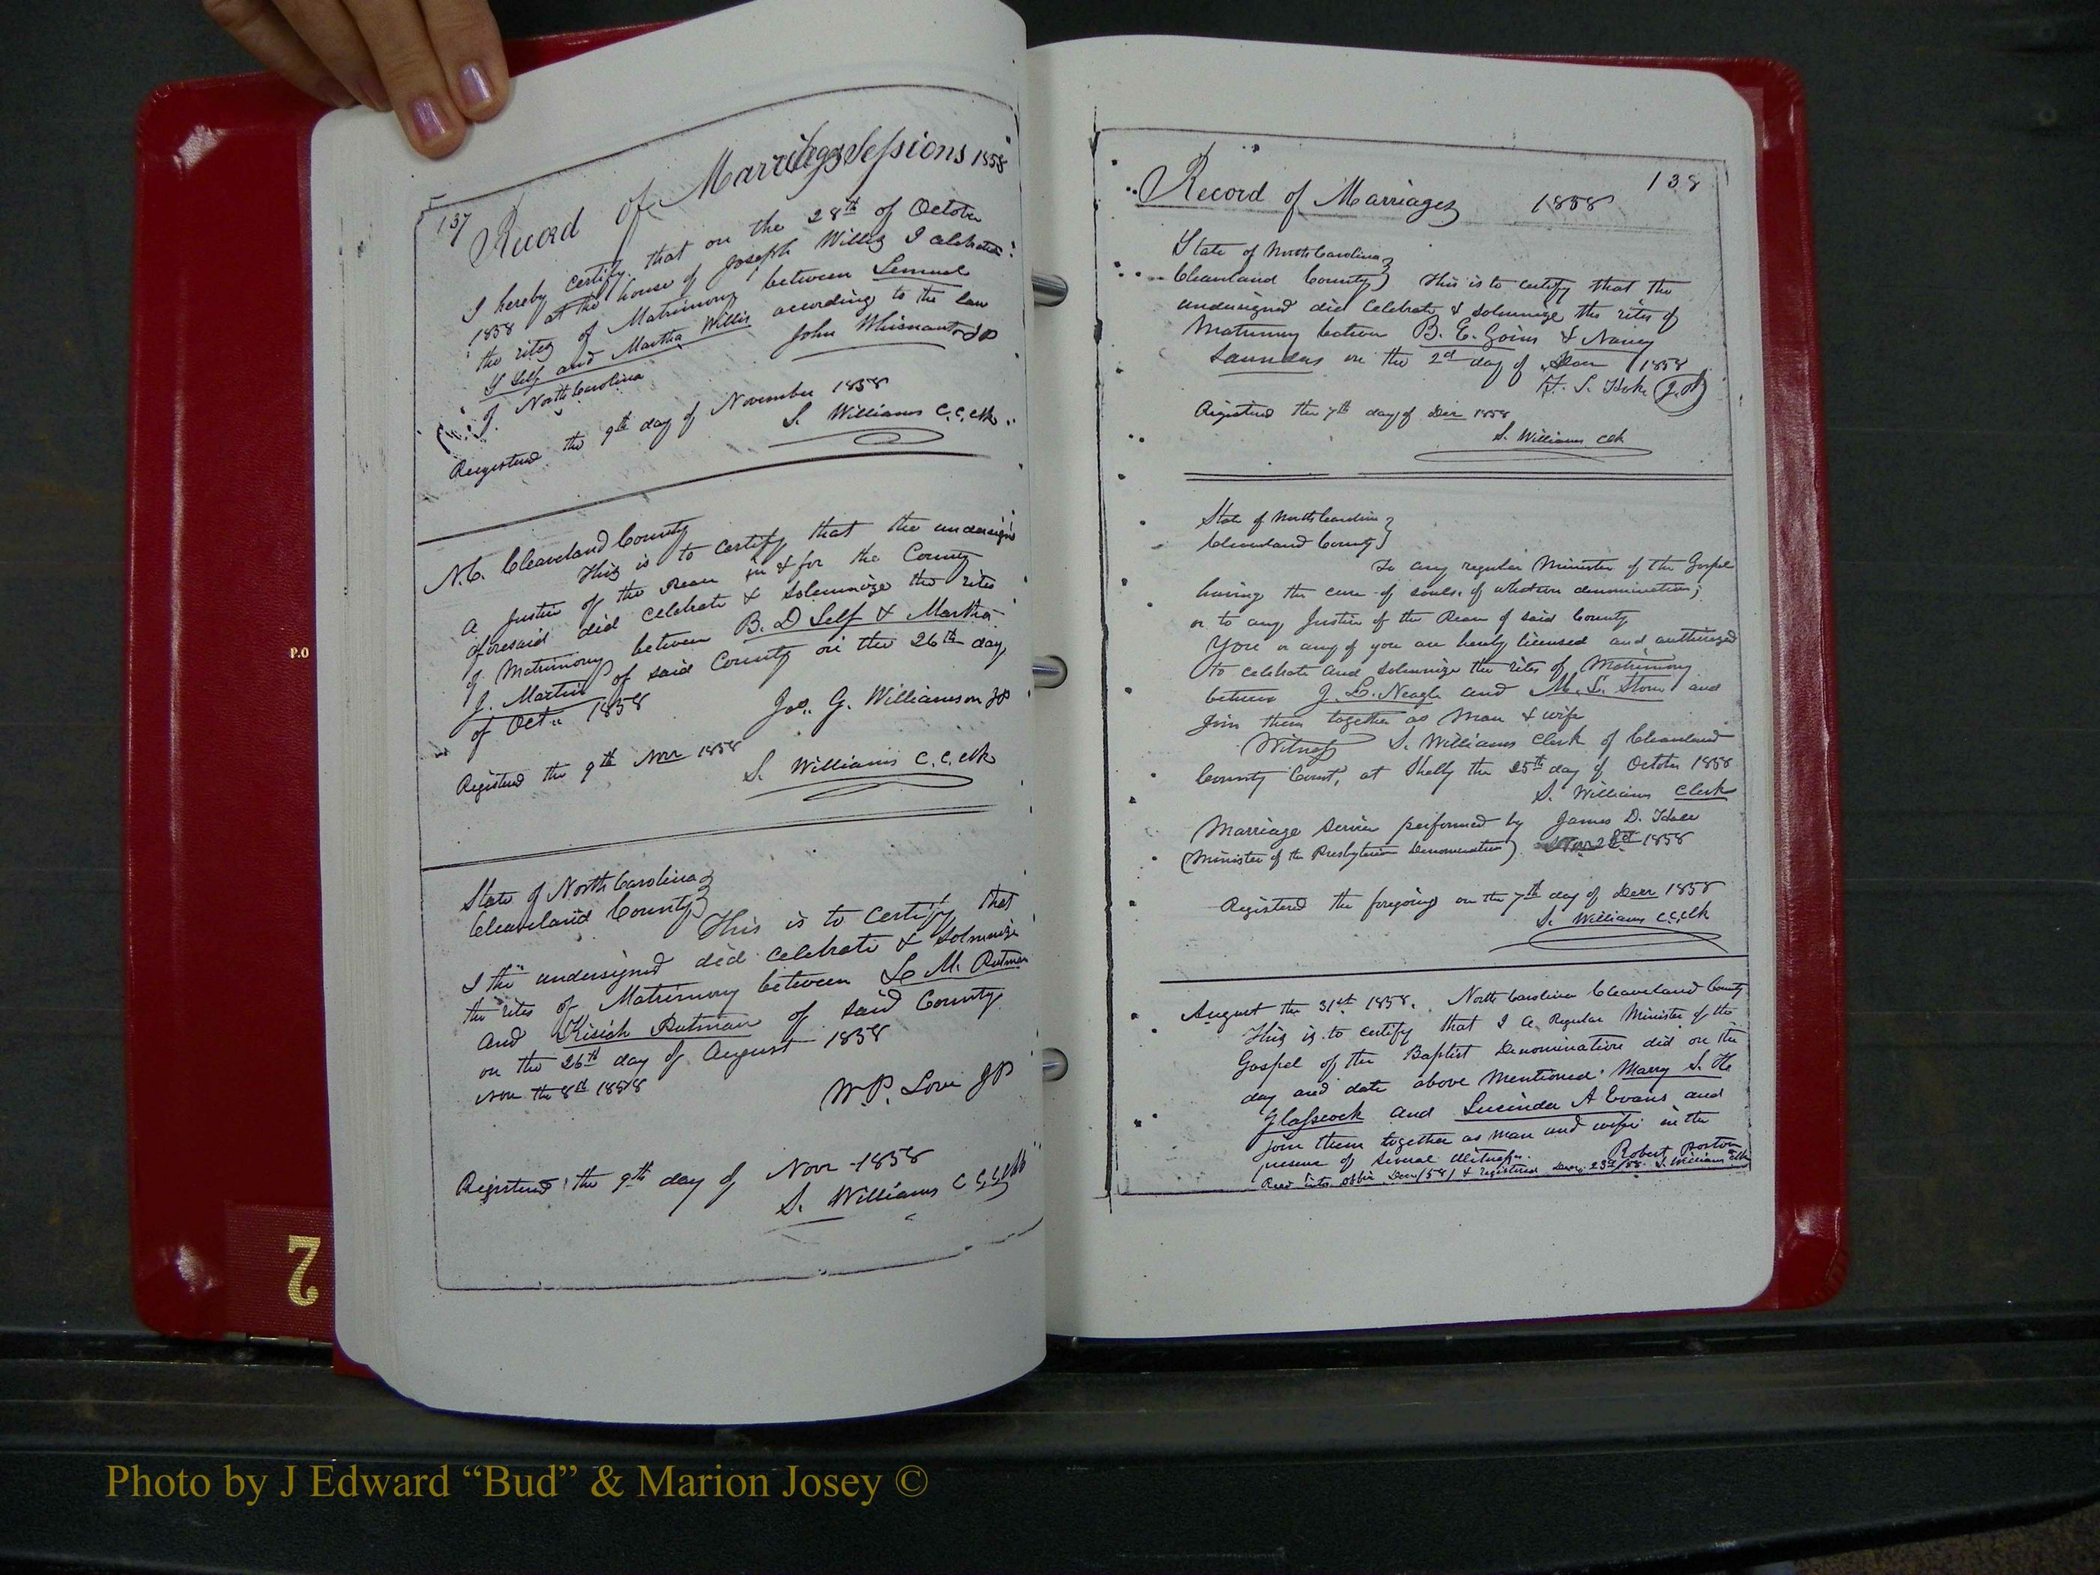 137
Record of Marriages Sessions 1858
I hereby certify that on the 28th of October
1858 at the house of Joseph Willis I celebrated
the rites of Matrimony between Lemuel
S Self and Martha Willis according to the law
of North Carolina John Whisnant JP
Registered the 9th day of November 1858
S. Williams C.C.Clk
N.C. Cleaveland County
This is to certify that the undersigned
a Justice of the Peace in & for the County
aforesaid did celebrate & solemnize the rites
of Matrimony between B. D Self & Martha
J. Martin of said County on the 26th day
of Octr 1858 Jos. G. Williamson JP
Registered the 9th Novr 1858
S. Williams C.C.Clk
State of North Carolina
Cleaveland County This is to certify that
I the undersigned did celebrate & solmnize
the rites of Matrimony between L. M. Putman
and Kisiah Putman of said County
on the 26th day of August 1858
Nov the 8th 1858 W.P. Love JP
Registered the 9th day of Novr 1858
S. Williams C C Clk
138
Record of Marriages 1858
State of North Carolina
Cleaveland County This is to certify that the
undersigned did celebrate & solemnize the rites of
Matrimony between B. E. Goins & Nancy
Saunders on the 2d day of Decr 1858
H. S. Hoke (J.P)
Registered the 7th day of Decr 1858
S. Williams Clk
State of North Carolina
Cleaveland County
To any regular Minister of the Gospel
having the cure of souls, of whatever denomination;
or to any Justice of the Peace of said County
You or any of you are hereby licensed and authorized
to celebrate and solemnize the rites of Matrimony
between J. L. Neagle and M. L. Stowe and
Join them together as Man & wife
Witness S. Williams Clerk of Cleaveland
County Court, at Shelby the 25th day of October 1858
S. Williams Clerk
Marriage service performed by James D. Hall
(Minister of the Presbyterian Denomination) 1858
Registered the foregoing on the 7th day of Decr 1858
S. Williams C.C.Clk
August the 31st 1858. North Carolina Cleaveland County
This is to certify that I a Regular Minister of the
Gospel of the Baptist Denomination did on the
day and date above mentioned Marry S. H
Glasscock and Lucinda A Evans and
join them together as man and wife in the
presence of several Witnesses. Robert Poston
Recd into office Decr /58 & registered Decr 23d /58. S. Williams Clk
P.O
2
Photo by J Edward “Bud” & Marion Josey ©